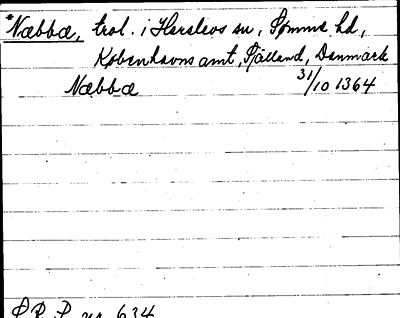 *Næbbæ, trol. i Herslevs sn, Sømme hd,
Københavns amt, Själland, Danmark
Næbbæ 31/10 1364
P.R.P. nr 634